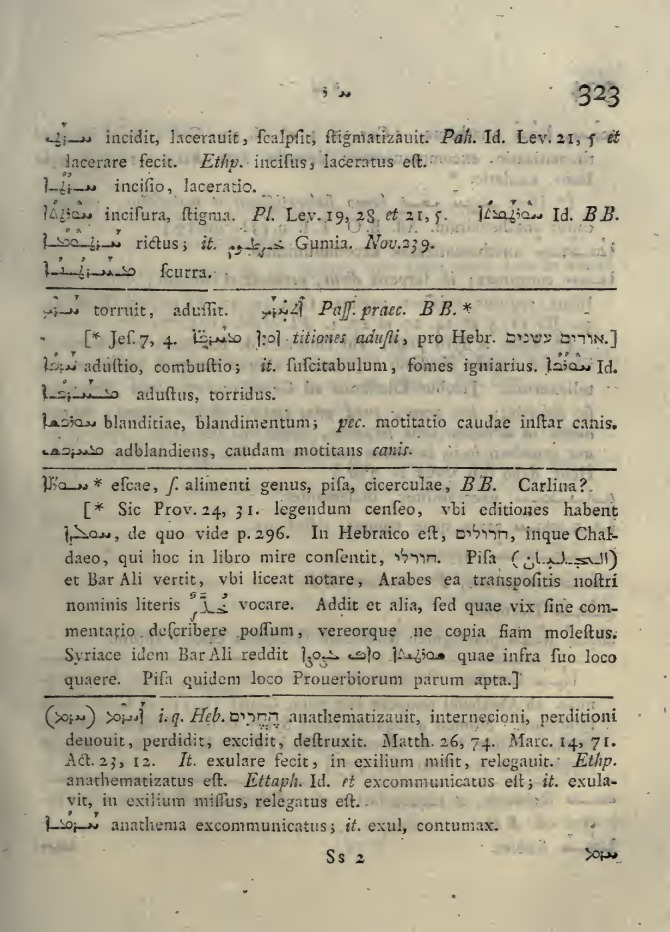 ܚ ܪ 323
ܚܪܛ incidit, lacerauit, ſcalpſit, ſtigmatizauit. Pah. Id. Lev. 21, 5 et
lacerare fecit. Ethp. inciſus, laceratus eſt.
ܚܪܛܐ inciſio, laceratio.
inciſura, ſtigma. Pl. Lev. 19, 28 et 21, 5. Id. BB.
rictus; it. خرطوم Gumia. Nov. 239.
ſcurra.
ܚܪܟ torruit, aduſſit. ܐܬܚܪܟ Paſſ. praec. BB. *
[* Jeſ. 7, 4. titiones aduſti, pro Hebr. אורים עשנים.]
ܚܪܟܐ aduſtio, combuſtio; it. ſuſcitabulum, fomes igniarius. ܚܘܪܟܐ Id.
aduſtus, torridus.
blanditiae, blandimentum; pec. motitatio caudae inſtar canis.
adblandiens, caudam motitans canis.
* eſcae, ſ. alimenti genus, piſa, cicerculae, BB. Carlina?
[* Sic Prov. 24, 31. legendum cenſeo, vbi editiones habent
, de quo vide p. 296. In Hebraico eſt, חרולים, inque Chal-
daeo, qui hoc in libro mire conſentit, חורולי. Piſa
et Bar Ali vertit, vbi liceat notare, Arabes ea tranſpoſitis noſtri
nominis literis vocare. Addit et alia, ſed quae vix ſine com-
mentario deſcribere poſſum, vereorque ne copia fiam moleſtus.
Syriace idem Bar Ali reddit quae infra ſuo loco
quaere. Piſa quidem loco Prouerbiorum parum apta.]
(ܚܪܡ) ܐܚܪܡ i. q. Heb. הֶחֱרִים anathematizauit, internecioni, perditioni
deuouit, perdidit, excidit, deſtruxit. Matth. 26, 74. Marc. 14, 71.
Act. 23, 12. It. exulare fecit, in exilium miſit, relegauit. Ethp.
anathematizatus eſt. Ettaph. Id. et excommunicatus eſt; it. exula-
vit, in exilium miſſus, relegatus eſt.
anathema excommunicatus; it. exul, contumax.
Ss 2 ܚܪܡ